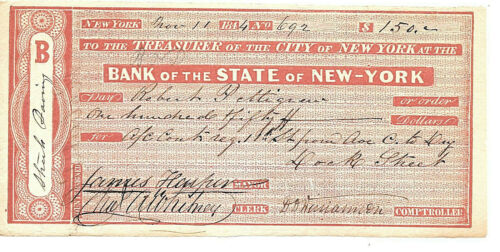 NEW YORK Nov 11 184 No 692 $150.
TO THE TREASURER OF THE CITY OF NEW YORK AT THE
BANK OF THE STATE OF NEW-YORK
Pay Robert Pettigrew or order
One hundred & fifty Dollars
for a/c Cont reg. 11th St from Ave C to Dry
Dock Street
B
Street Paving
COUNTERSIGNED
James Harper MAYOR
CLERK COMPTROLLER